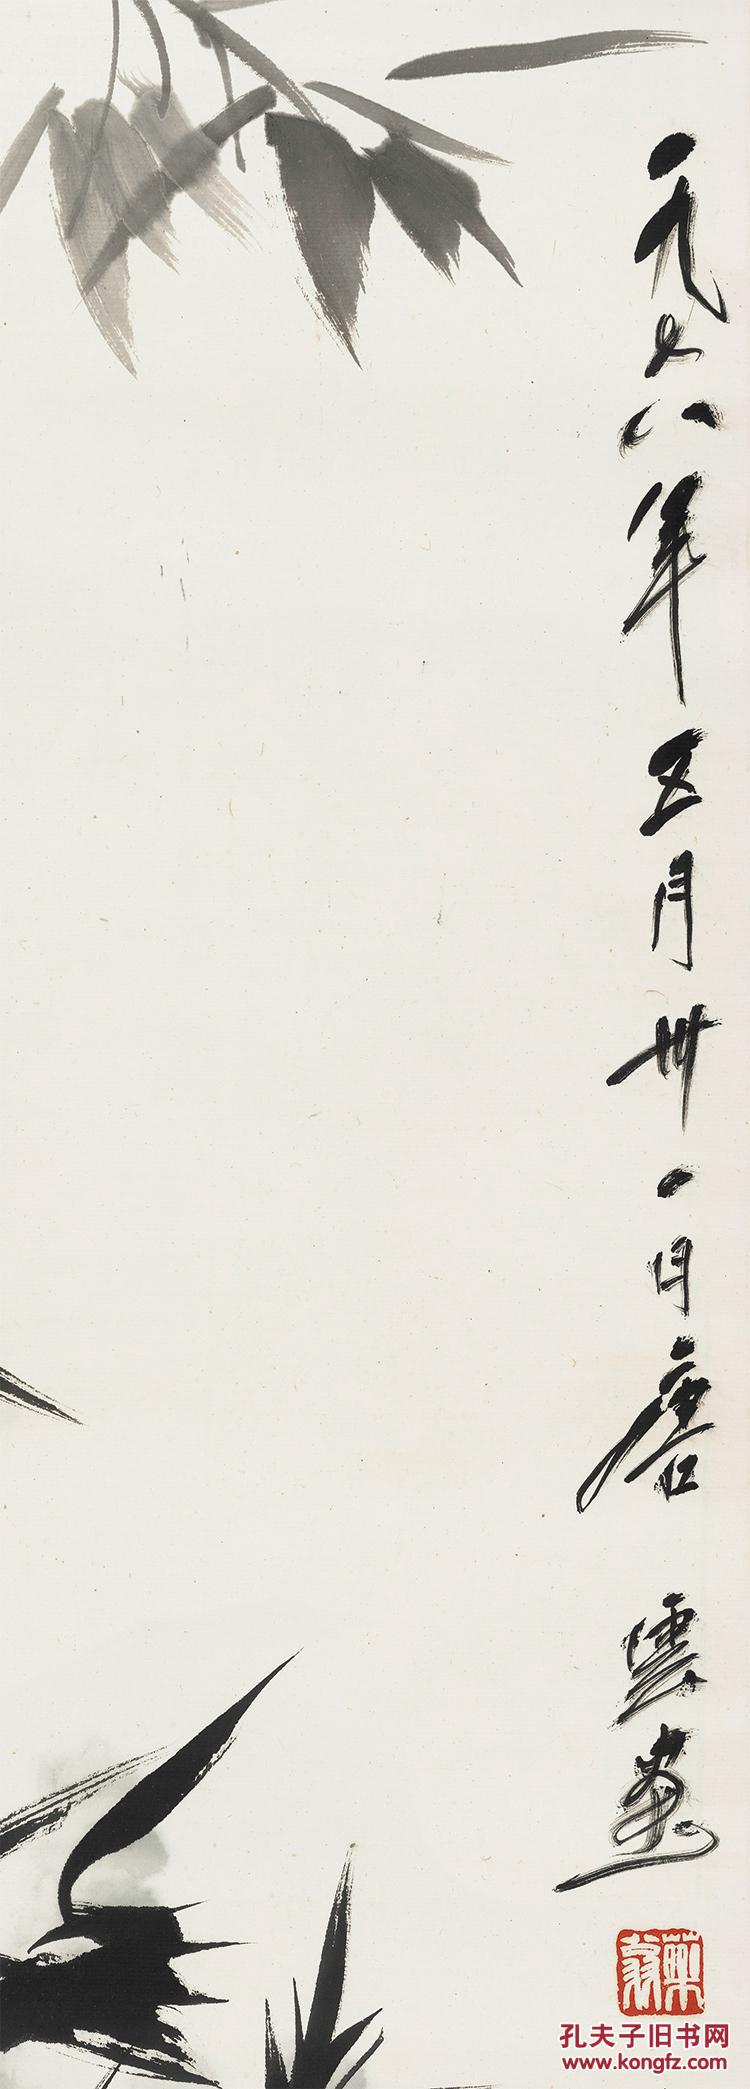 一九七八年五月卅一日唐雲畫
藥翁
孔夫子旧书网
www.kongfz.com